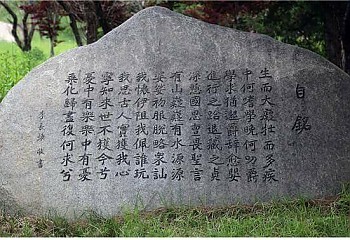 自銘
生而大癡壯而多疾
中何嗜學晚何叨爵
學求猶邈爵辭愈嬰
進行之跲退藏之貞
深慙國恩亶畏聖言
有山嶷嶷有水源源
婆娑初服脫略衆訕
我懷伊阻我佩誰玩
我思古人實獲我心
寧知來世不獲今兮
憂中有樂樂中有憂
乘化歸盡復何求兮